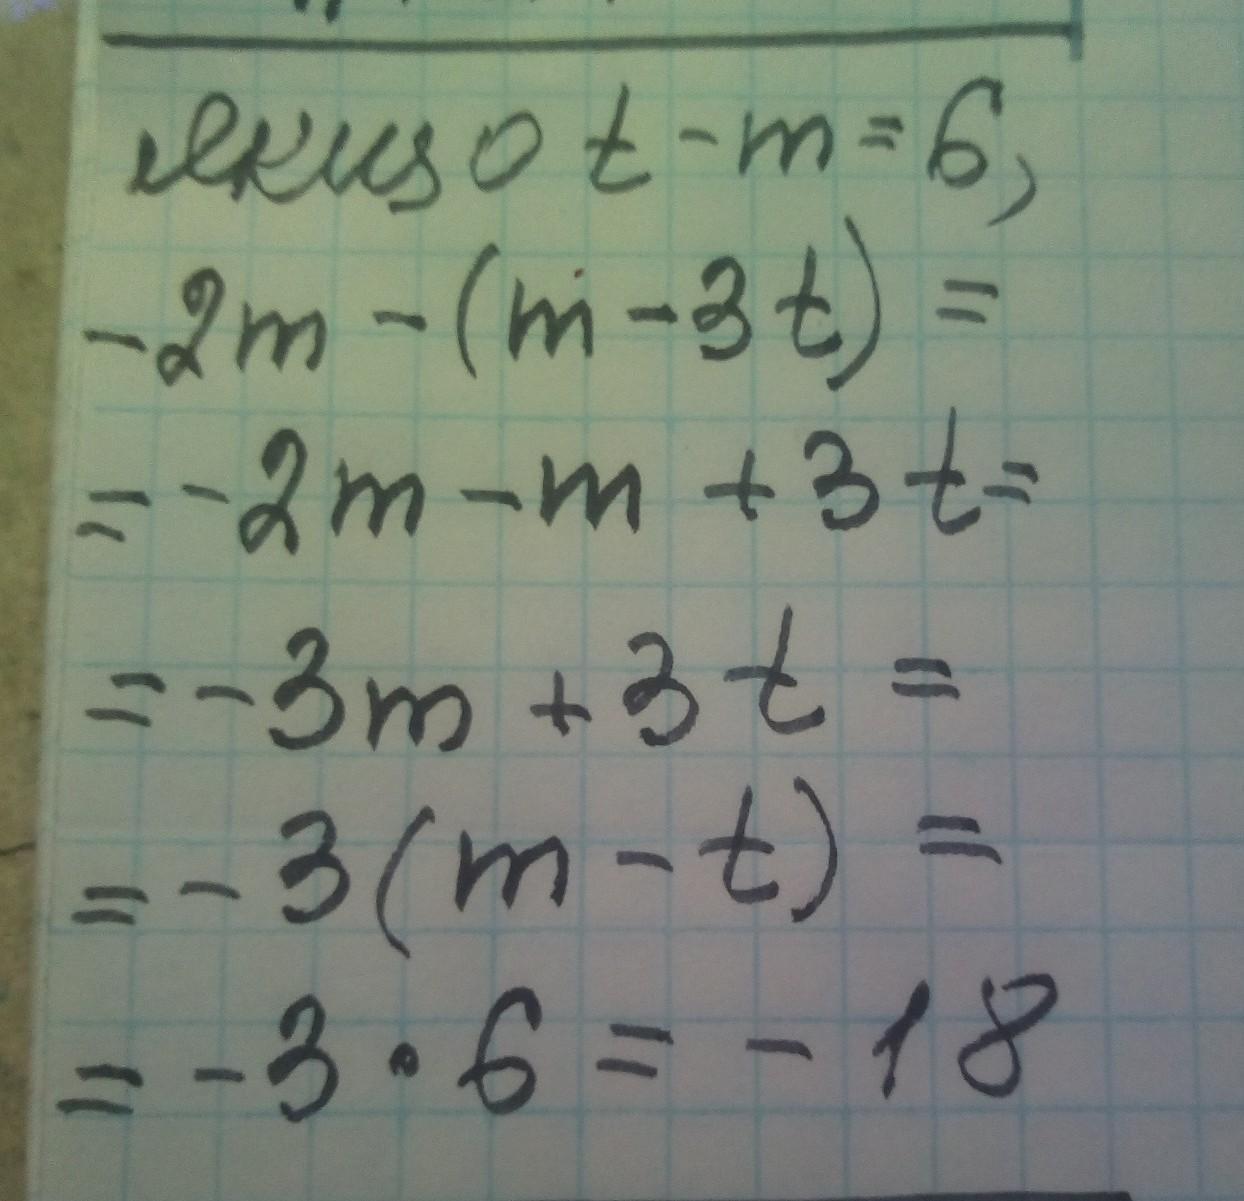 якщо t - m = 6,
- 2m - (m - 3t) =
= - 2m - m + 3t =
= - 3m + 3t =
= - 3(m - t) =
= - 3 · 6 = - 18